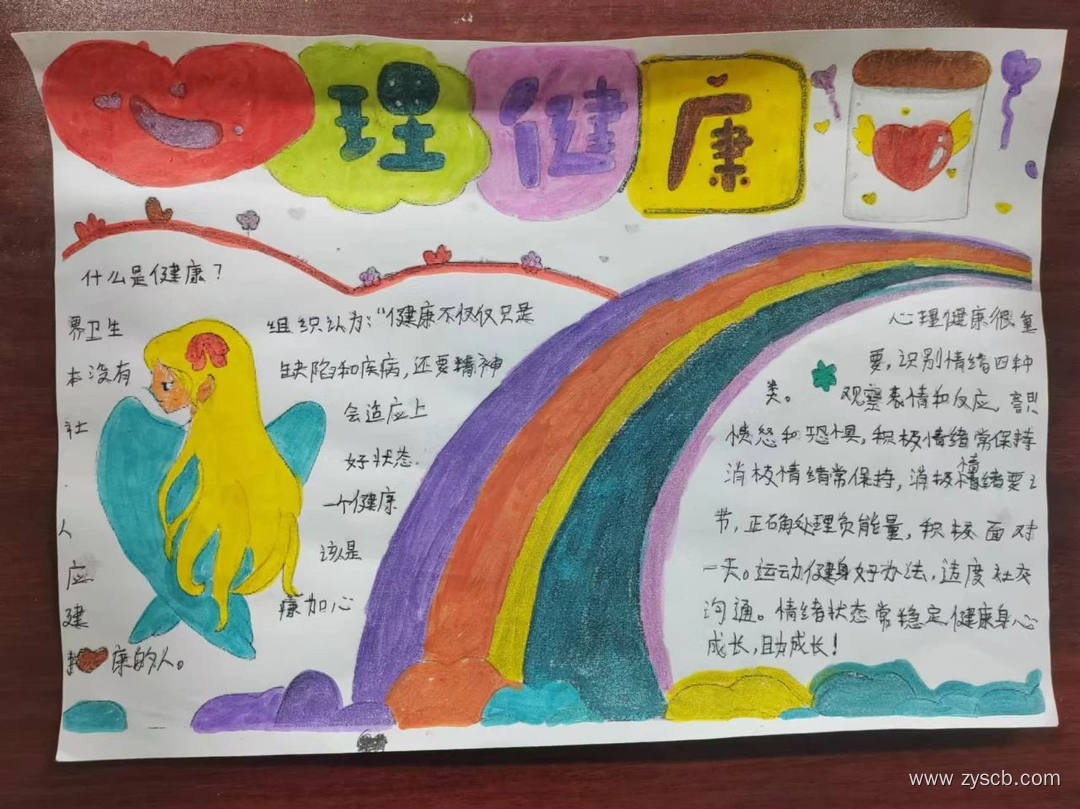 心理健康
什么是健康？
界卫生 组织认为："健康不仅仅只是
本没有 缺陷和疾病，还要精神
社 会适应上
好状态.
一个健康
人 该是
应
建 康加心
康的人。
心理健康很重
要，识别情绪四种
类。观察表情和反应，
愤怒和恐惧，积极情绪常保持
消极情绪常保持，消极情绪要
情
节，正确处理负能量，积极面对
一天。运动健身好办法，适度社交
沟通。情绪状态常稳定健康身心
成长，助成长！
www.zyscb.com